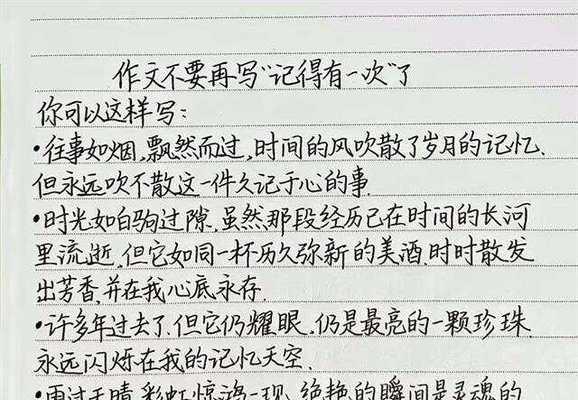 作文不要再写“记得有一次”了
你可以这样写:
•往事如烟,飘然而过,时间的风吹散了岁月的记忆.
但永远吹不散这一件久记于心的事.
•时光如白驹过隙.虽然那段经历已在时间的长河
里流逝.但它如同一杯历久弥新的美酒.时时散发
出芳香,并在我心底永存.
•许多年过去了.但它仍耀眼.仍是最亮的一颗珍珠.
永远闪烁在我的记忆天空.
•雨过天晴.彩虹惊鸿一现.绝艳的瞬间是灵魂的